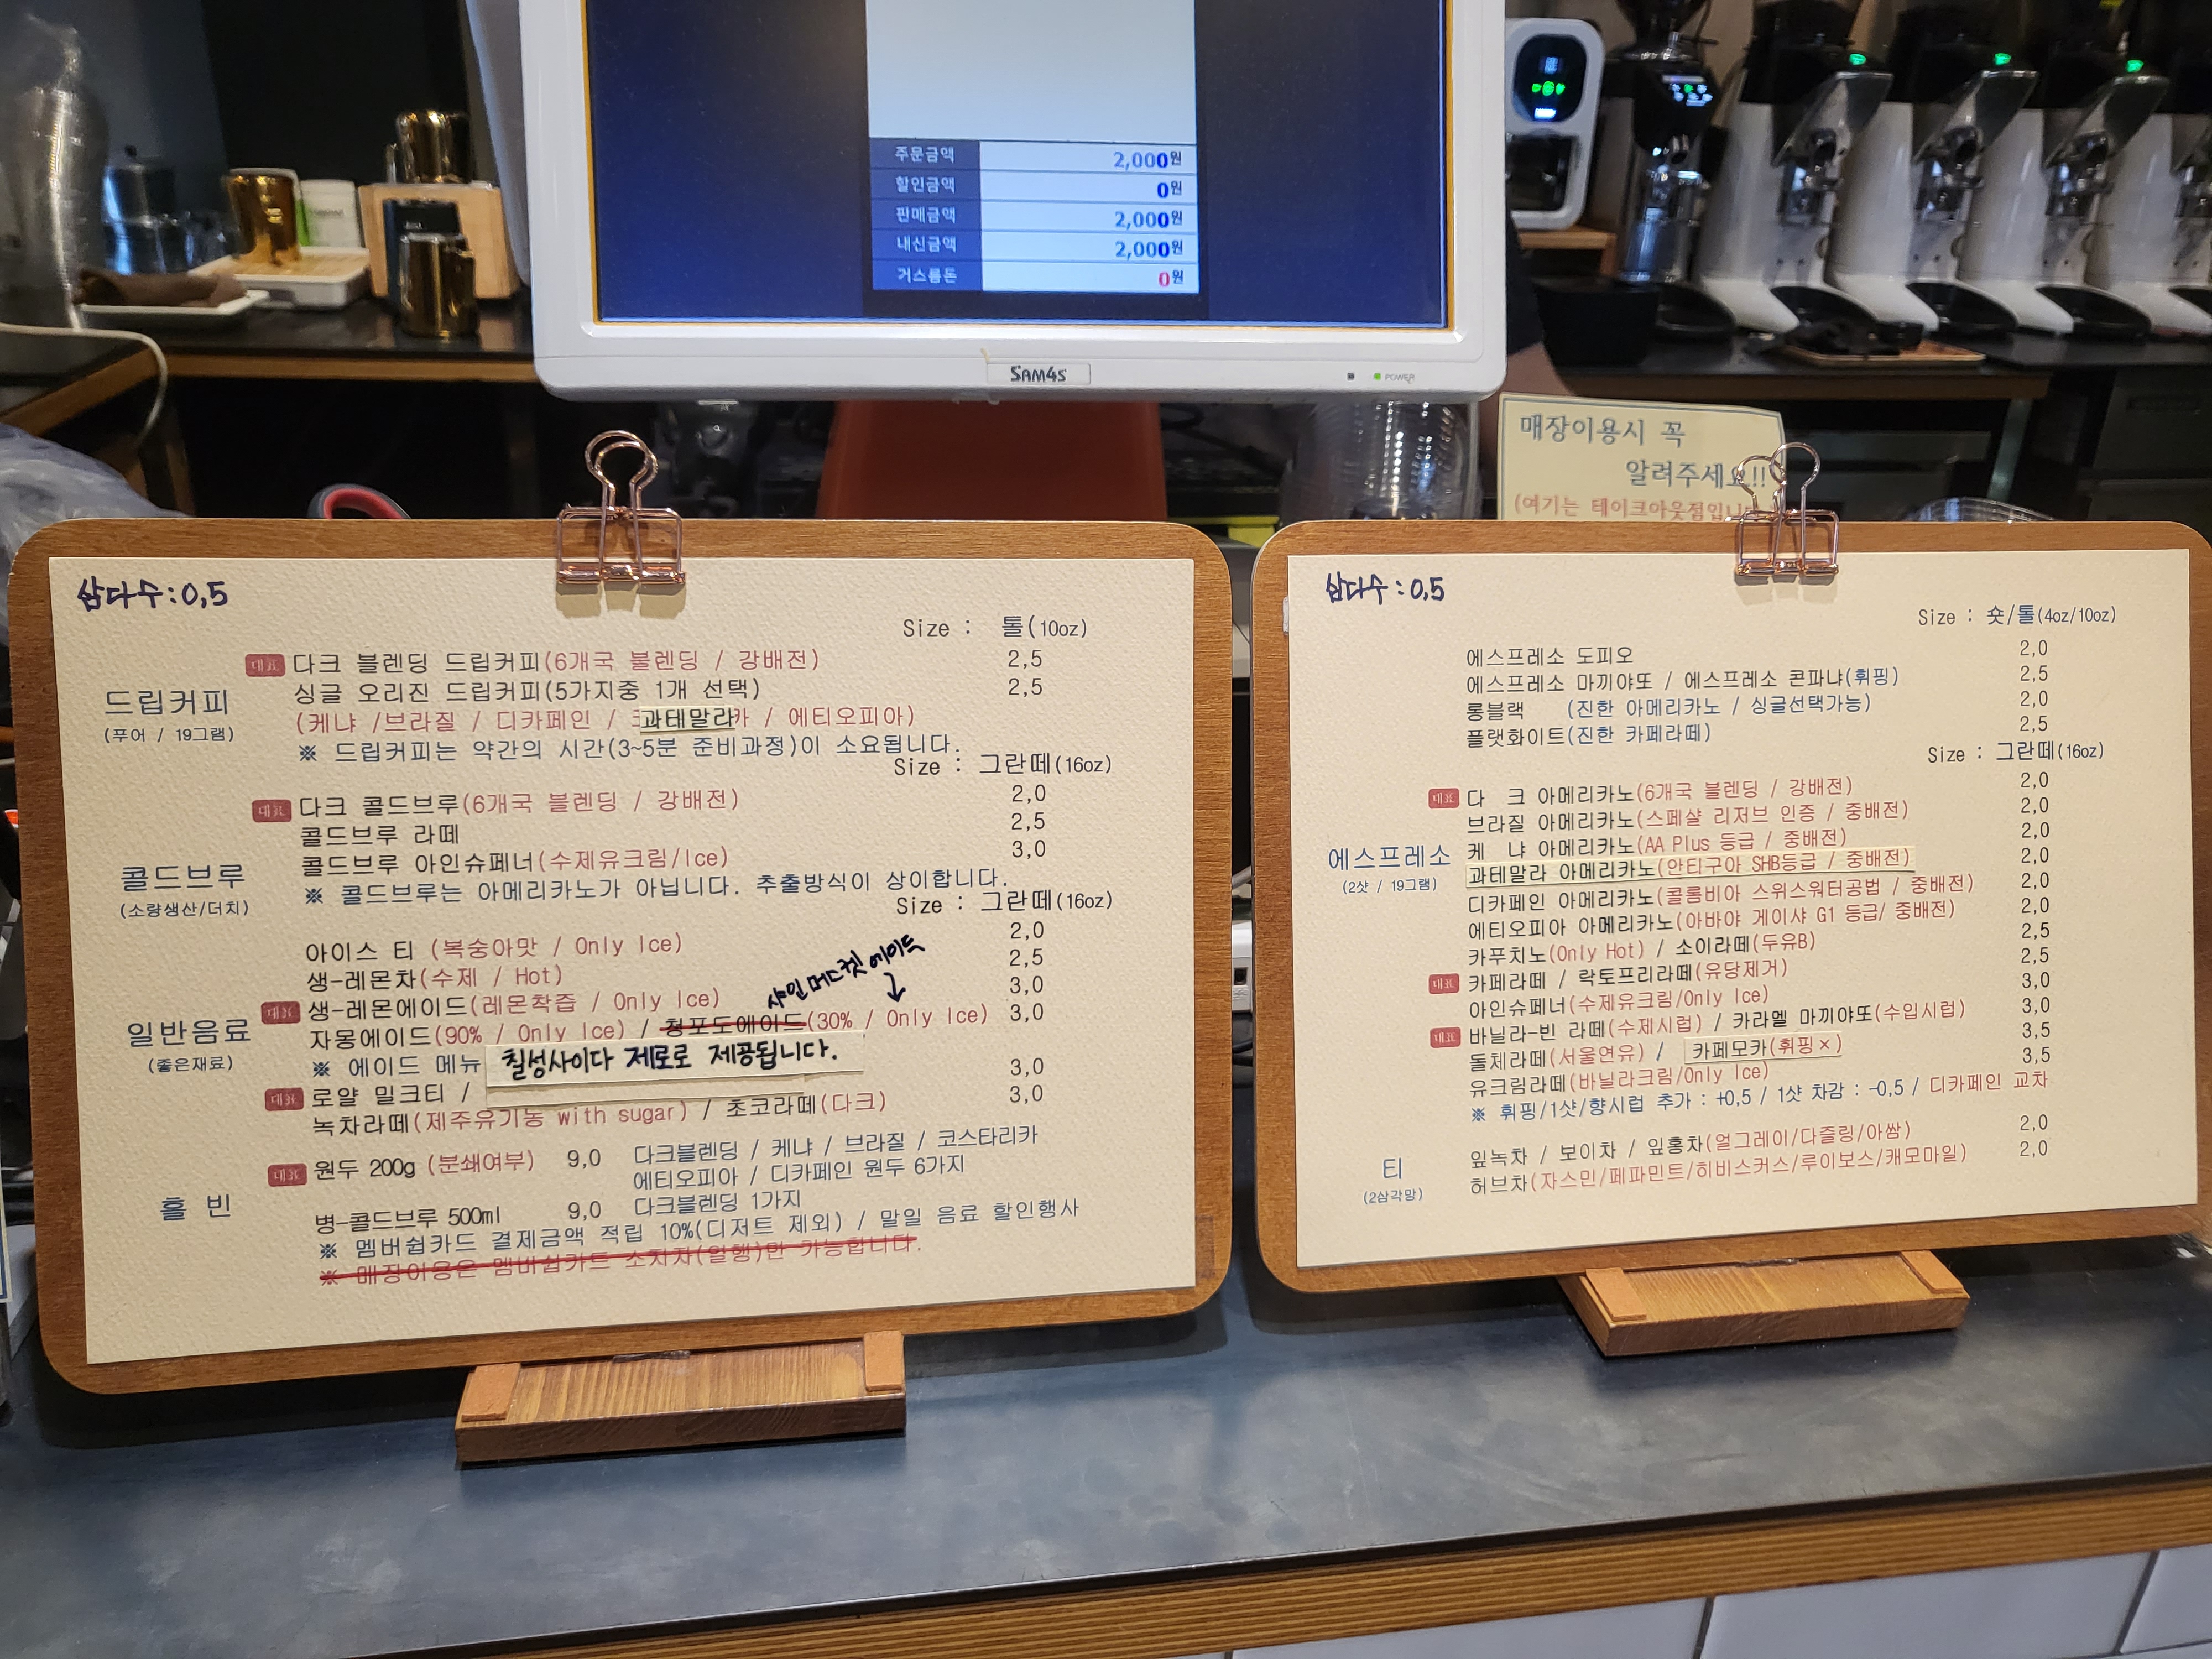 주문금액 2,000원
할인금액 0원
판매금액 2,000원
내신금액 2,000원
거스름돈 0원
SAM4S
POWER
매장이용시 꼭
알려주세요!!
(여기는 테이크아웃점입니
삼다수:0,5
Size : 톨(10oz)
드립커피
(푸어 / 19그램)
대표 다크 블렌딩 드립커피(6개국 블렌딩 / 강배전) 2,5
싱글 오리진 드립커피(5가지중 1개 선택) 2,5
(케냐 /브라질 / 디카페인 / 과테말라 / 에티오피아)
※ 드립커피는 약간의 시간(3~5분 준비과정)이 소요됩니다.
Size : 그란떼(16oz)
콜드브루
(소량생산/더치)
대표 다크 콜드브루(6개국 블렌딩 / 강배전) 2,0
콜드브루 라떼 2,5
콜드브루 아인슈페너(수제유크림/Ice) 3,0
※ 콜드브루는 아메리카노가 아닙니다. 추출방식이 상이합니다.
Size : 그란떼(16oz)
일반음료
(좋은재료)
아이스 티 (복숭아맛 / Only Ice) 2,0
생-레몬차(수제 / Hot) 2,5
대표 생-레몬에이드(레몬착즙 / Only Ice) 3,0
샤인머스켓 에이드
자몽에이드(90% / Only Ice) / 청포도에이드(30% / Only Ice) 3,0
※ 에이드 메뉴 칠성사이다 제로로 제공됩니다.
대표 로얄 밀크티 / 3,0
녹차라떼(제주유기농 with sugar) / 초코라떼(다크) 3,0
홀 빈
대표 원두 200g (분쇄여부) 9,0 다크블렌딩 / 케냐 / 브라질 / 코스타리카
에티오피아 / 디카페인 원두 6가지
병-콜드브루 500ml 9,0 다크블렌딩 1가지
※ 멤버쉽카드 결제금액 적립 10%(디저트 제외) / 말일 음료 할인행사
※ 매장이용은 멤버쉽카드 소지자(일행)만 가능합니다.
삼다수:0,5
Size : 숏/톨(4oz/10oz)
에스프레소 도피오 2,0
에스프레소 마끼야또 / 에스프레소 콘파냐(휘핑) 2,5
롱블랙 (진한 아메리카노 / 싱글선택가능) 2,0
플랫화이트(진한 카페라떼) 2,5
Size : 그란떼(16oz)
에스프레소
(2샷 / 19그램)
대표 다 크 아메리카노(6개국 블렌딩 / 강배전) 2,0
브라질 아메리카노(스페샬 리저브 인증 / 중배전) 2,0
케 냐 아메리카노(AA Plus 등급 / 중배전) 2,0
과테말라 아메리카노(안티구아 SHB등급 / 중배전) 2,0
디카페인 아메리카노(콜롬비아 스위스워터공법 / 중배전) 2,0
에티오피아 아메리카노(아바야 게이샤 G1 등급/ 중배전) 2,0
카푸치노(Only Hot) / 소이라떼(두유B) 2,5
대표 카페라떼 / 락토프리라떼(유당제거) 2,5
아인슈페너(수제유크림/Only Ice) 3,0
대표 바닐라-빈 라떼(수제시럽) / 카라멜 마끼야또(수입시럽) 3,0
돌체라떼(서울연유) / 카페모카(휘핑×) 3,5
유크림라떼(바닐라크림/Only Ice) 3,5
※ 휘핑/1샷/향시럽 추가 : +0,5 / 1샷 차감 : -0,5 / 디카페인 교차
티
(2삼각망)
잎녹차 / 보이차 / 잎홍차(얼그레이/다즐링/아쌈) 2,0
허브차(자스민/페파민트/히비스커스/루이보스/캐모마일) 2,0